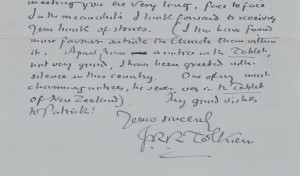 meeting you are very long, face to face.
In the meanwhile I look forward to receiving
your book of stories. (I too have found
more favour outside the Church than within
it. Apart from a notice in the Tablet,
not very good, I have been greeted with
silence in this country. One of my most
charming notices, he sever, was in the Tablet
of New Zealand). My good wishes
to Patrick!
Yours sincerely
J.R.R. Tolkien.